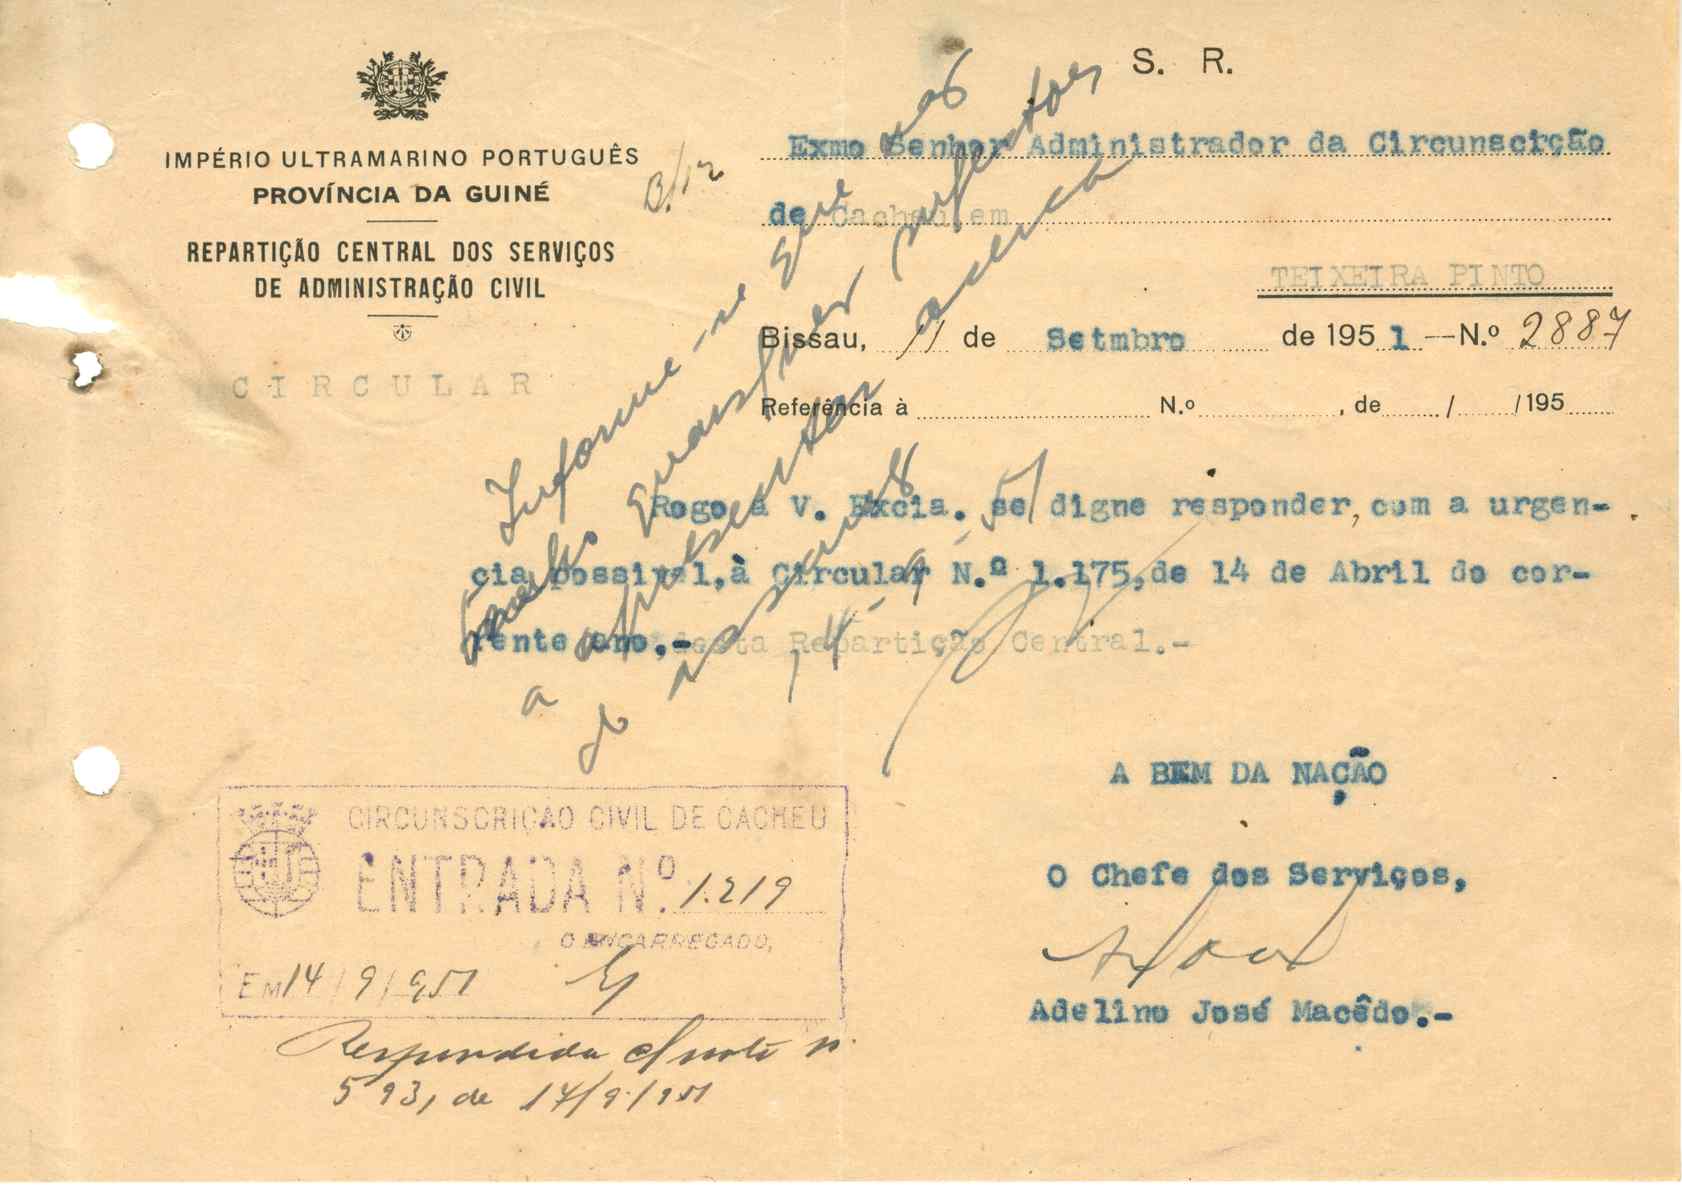 S. R.
IMPÉRIO ULTRAMARINO PORTUGUÊS
PROVÍNCIA DA GUINÉ
REPARTIÇÃO CENTRAL DOS SERVIÇOS
DE ADMINISTRAÇÃO CIVIL
CIRCULAR
B/12
Exmo Senhor Administrador da Circunscirção
de Cacheu, em
TEIXEIRA PINTO
Bissau, 11 de Setmbro de 1951 —N.º 2887
Referência à N.º , de / /195
Informe-se que não
temos quaisquer
a apresentar acerca
do assunto
14-9-51
Rogo a V. Excia. se digne responder, com a urgen-
cia possivel, à Circular N.º 1.175, de 14 de Abril do cor-
rente ano, desta Repartição Central.-
A BEM DA NAÇÃO
O Chefe dos Serviços,
Adelino José Macêdo.-
CIRCUNSCRIÇÃO CIVIL DE CACHEU
ENTRADA Nº 1.219
O ENCARREGADO,
EM 14/9/951
Respondida nota nº
593, de 17/9/951